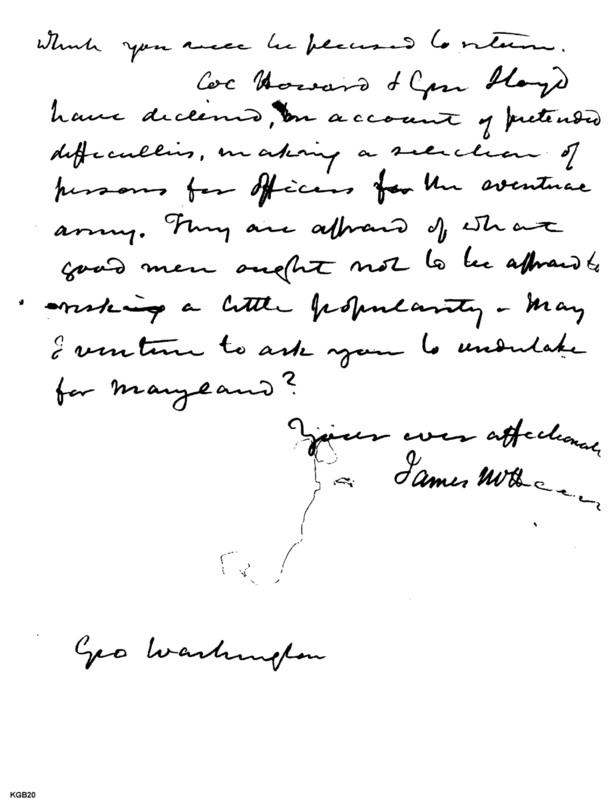 which you will be pleased to return.
Col Howard & Gen Lloyd
have declined, on account of pretended
difficulties, making a selection of
persons for officers for the eventual
army. They are affraid of what
good men ought not to be affraid to
risking a little popularity - May
I venture to ask you to undertake
for Maryland?
Yours ever affectionate
James McH
Geo Washington
KGB20